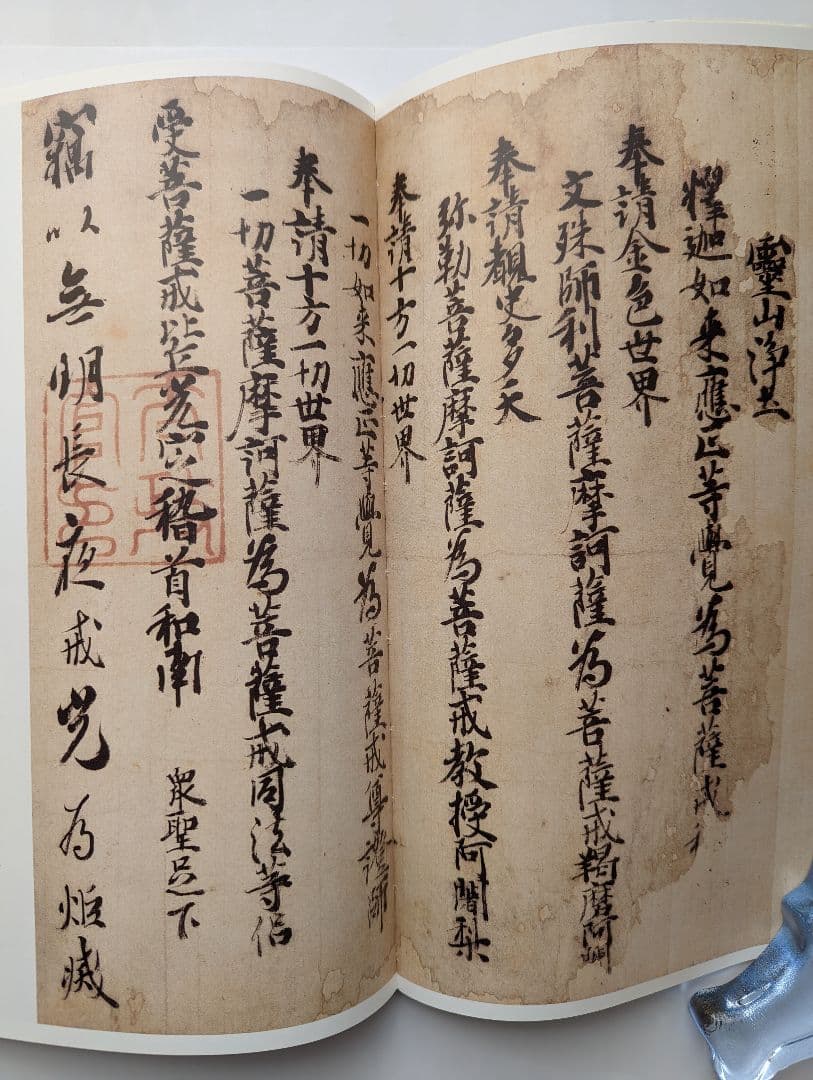 靈山浄土
釋迦如来應正等覺為菩薩戒
奉請金色世界
文殊師利菩薩摩訶薩為菩薩戒羯磨阿闍
奉請覩史多天
弥勒菩薩摩訶薩為菩薩戒教授阿闍梨
奉請十方一切世界
一切如来應正等覺為菩薩戒尊證師
奉請十方一切世界
一切菩薩摩訶薩為菩薩戒同法等侶
受菩薩戒比丘光定稽首和南 衆聖足下
竊以無明長夜戒光為炬